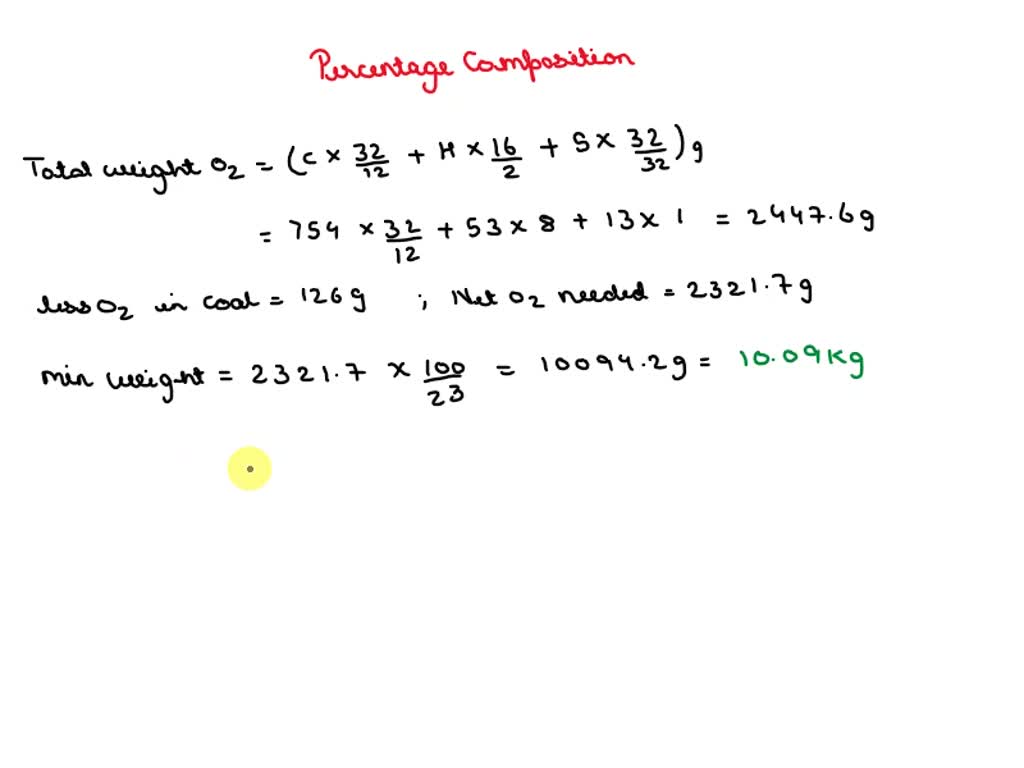 Percentage Composition
Total weight O₂ = (C × 32/12 + H × 16/2 + S × 32/32) g
= 754 × 32/12 + 53 × 8 + 13 × 1 = 2447.6g
less O₂ in coal = 126g ; Net O₂ needed = 2321.7g
Min weight = 2321.7 × 100/23 = 10094.2g = 10.09Kg